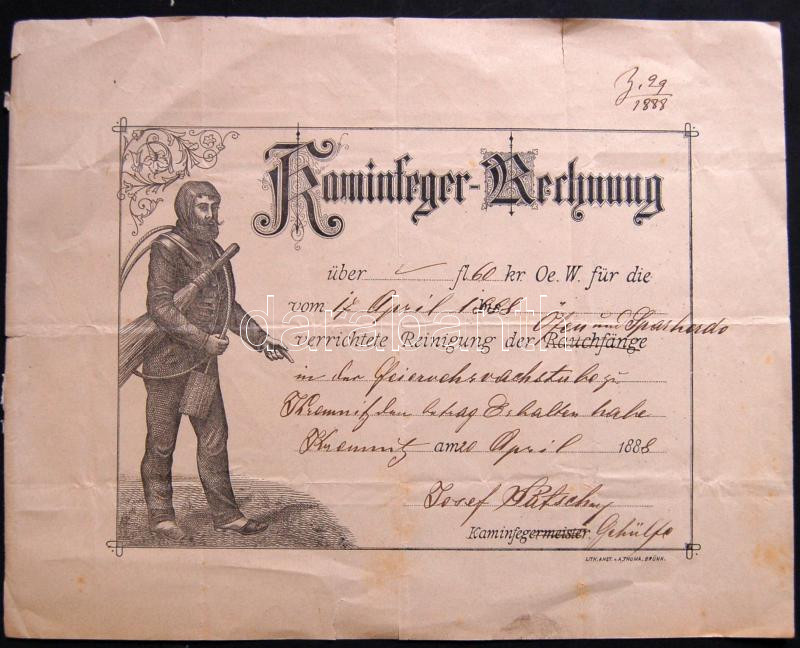 Z. 29
1888
Kaminfeger-Rechnung
über fl 60 kr Oe. W. für die
vom 17 April 1888
Öfen und Sparherds
verrichtete Reinigung der Rauchfänge
in der Feierwehrwachstube zu
Kremnitz den betrag Erhalten habe
Kremnitz am 20 April 1888
Josef
Kaminfegermeister. Gehülfe
LITH. ANST. v. A. THOMA, BRÜNN.
darabanth